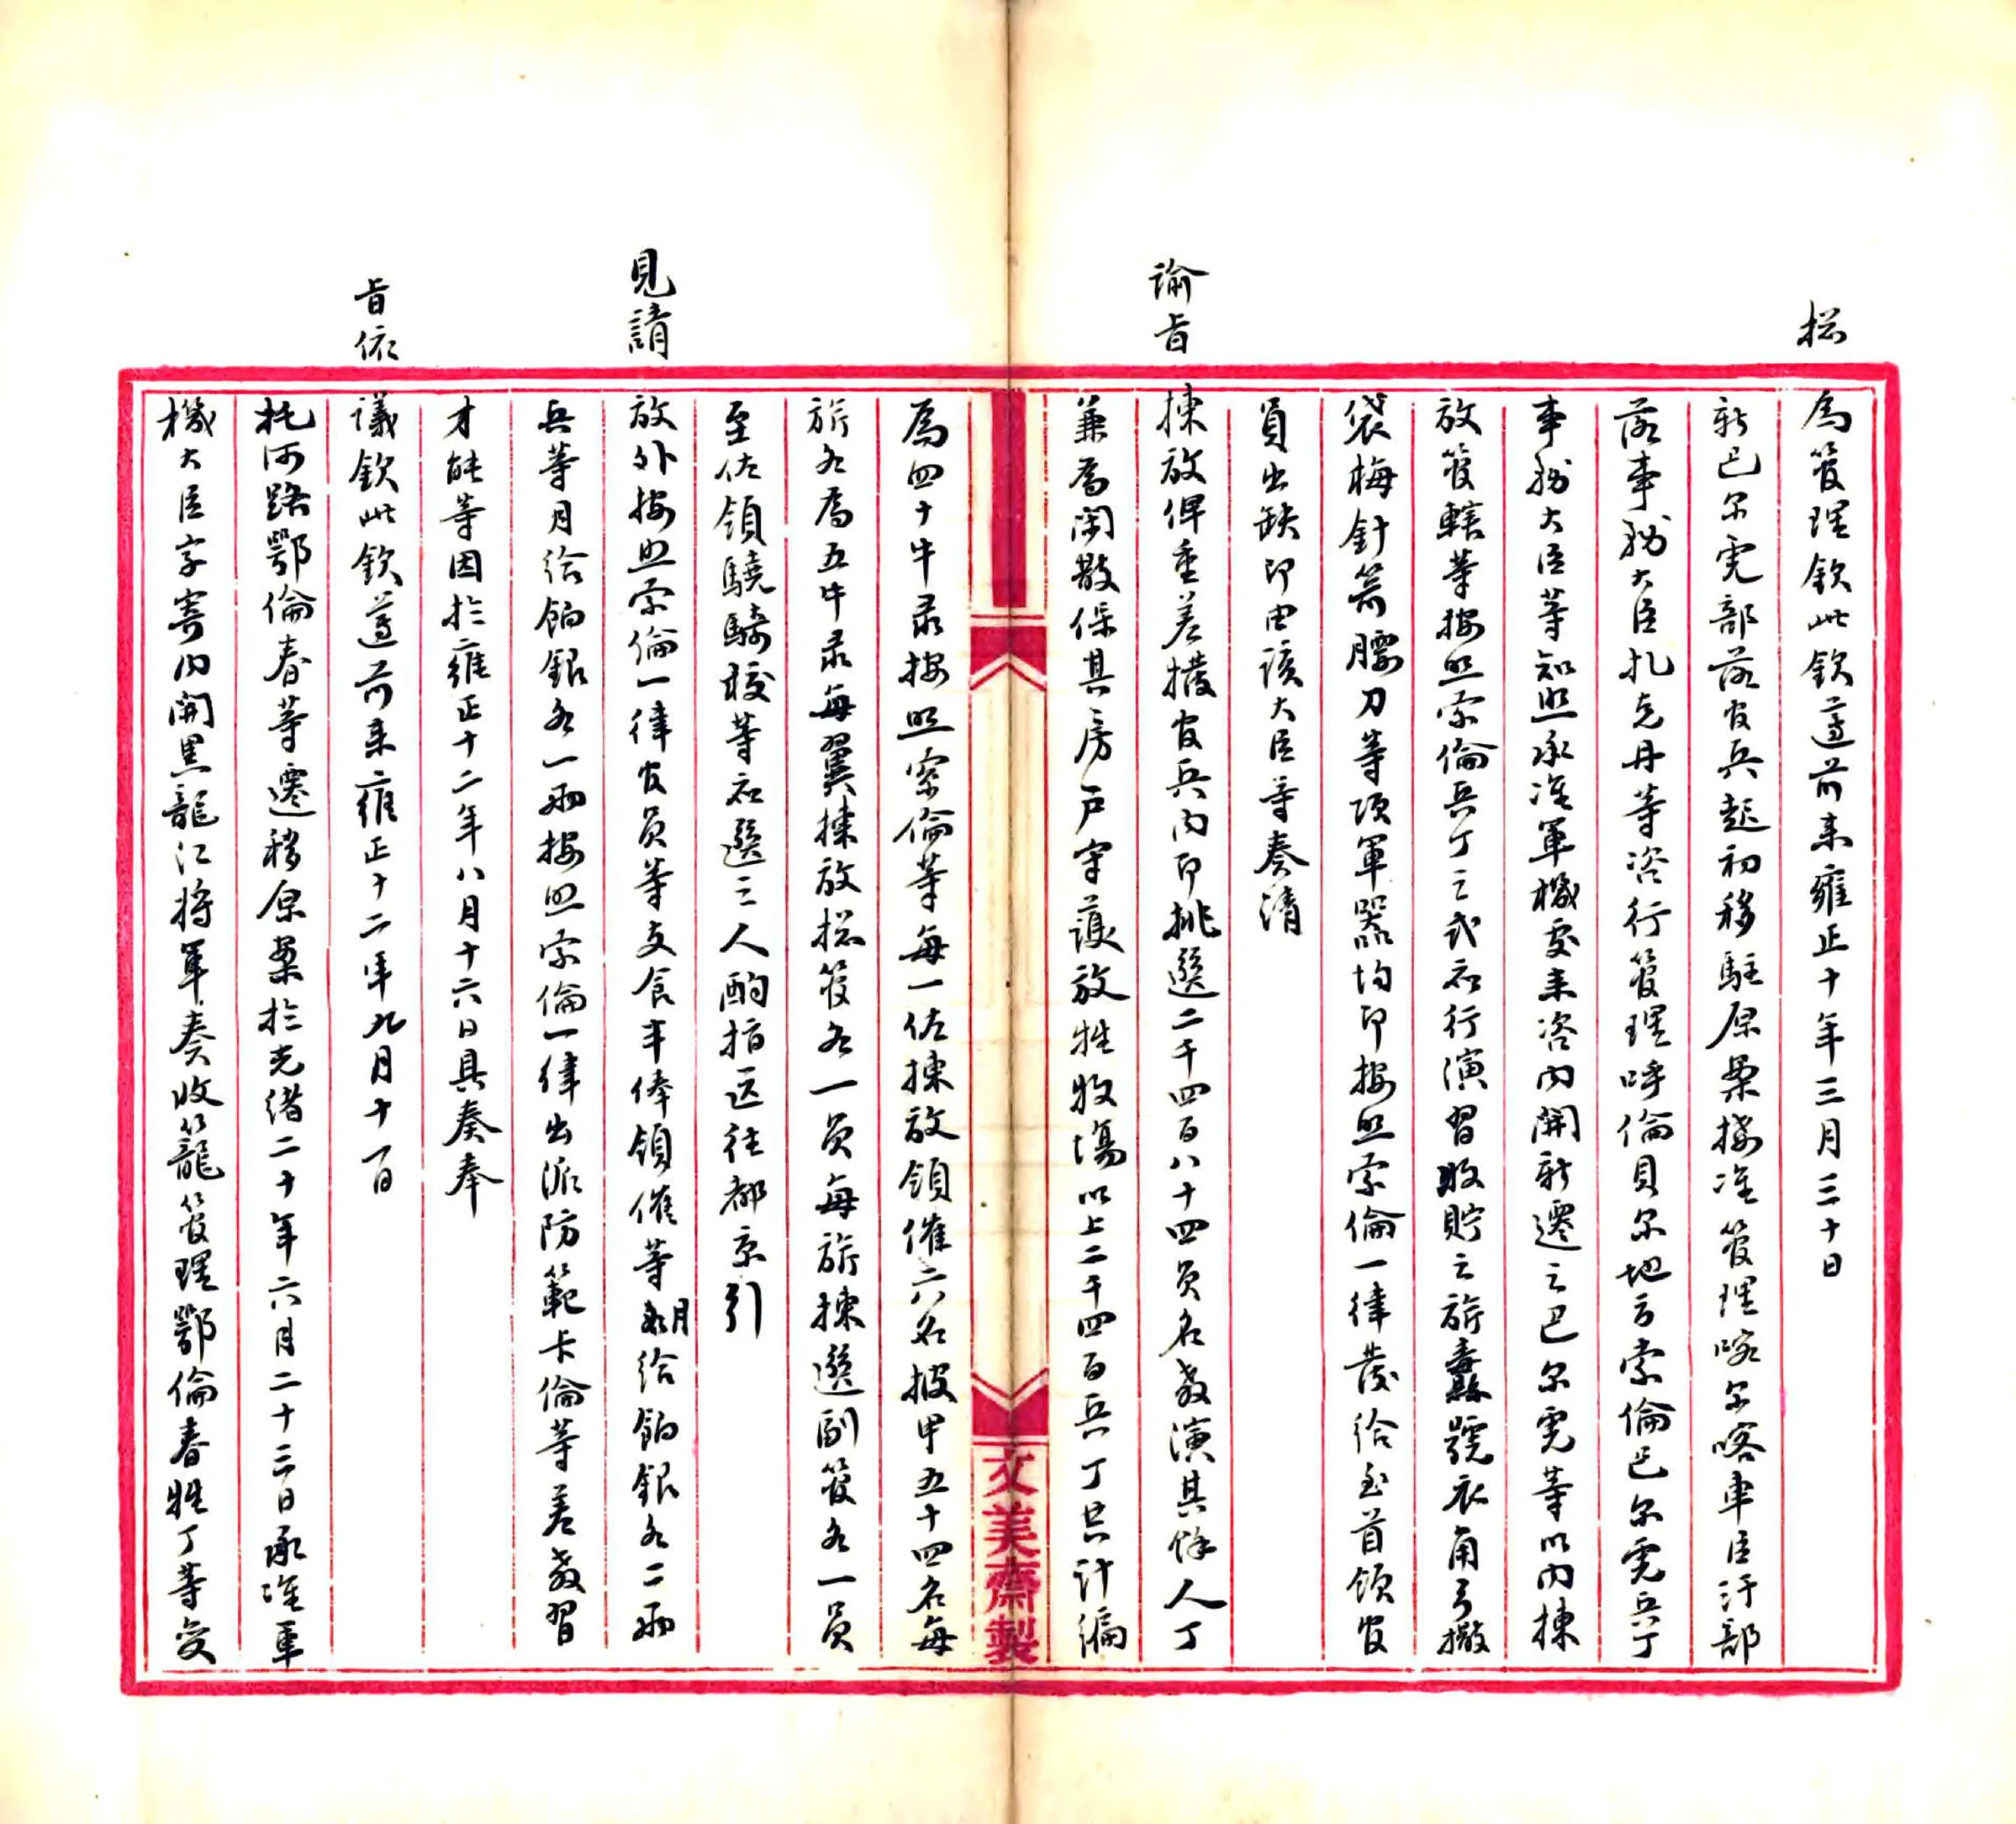 揔為管理欽此欽遵前来雍正十年三月三十日
新巴尔虎部落官兵起初移駐原案接准管理喀尔喀車臣汗部
落事務大臣扎克丹等咨行管理呼倫貝尔地方索倫巴尔虎兵丁
事務大臣等知照承准軍機处来咨内開新遷之巴尔虎等以内揀
放管轄等按照索倫兵丁之式令行演習收貯之旂纛號衣角弓撒
袋梅針箭腰刀等項軍器均即按照索倫一律發給至首領官
員出缺即由該大臣等奏請
諭旨揀放俾重差撥官兵内即挑選二千四百八十四員名教演其馀人丁
兼為閑散保其房户守護放牲牧場以上二千四百兵丁共計編
文美齋製
為四十牛录按照索倫等每一佐揀放領催六名披甲五十四名每
旂各為五牛录每翼揀放揔管各一員每旂揀選副管各一員
至佐領驍騎校等各選三人酌指送往都京引
見請放外按照索倫一律官員等支食半俸領催等每月給餉銀各二兩
兵等月給餉銀各一兩按照索倫一律出派防範卡倫等差教習
才能等因於雍正十二年八月十六日具奏奉
旨依議欽此欽遵前来雍正十二年九月十一日
托河路鄂倫春等遷移原案於光緒二十年六月二十三日承准軍
機大臣字寄内開黑龍江將軍奏收籠管理鄂倫春牲丁等交